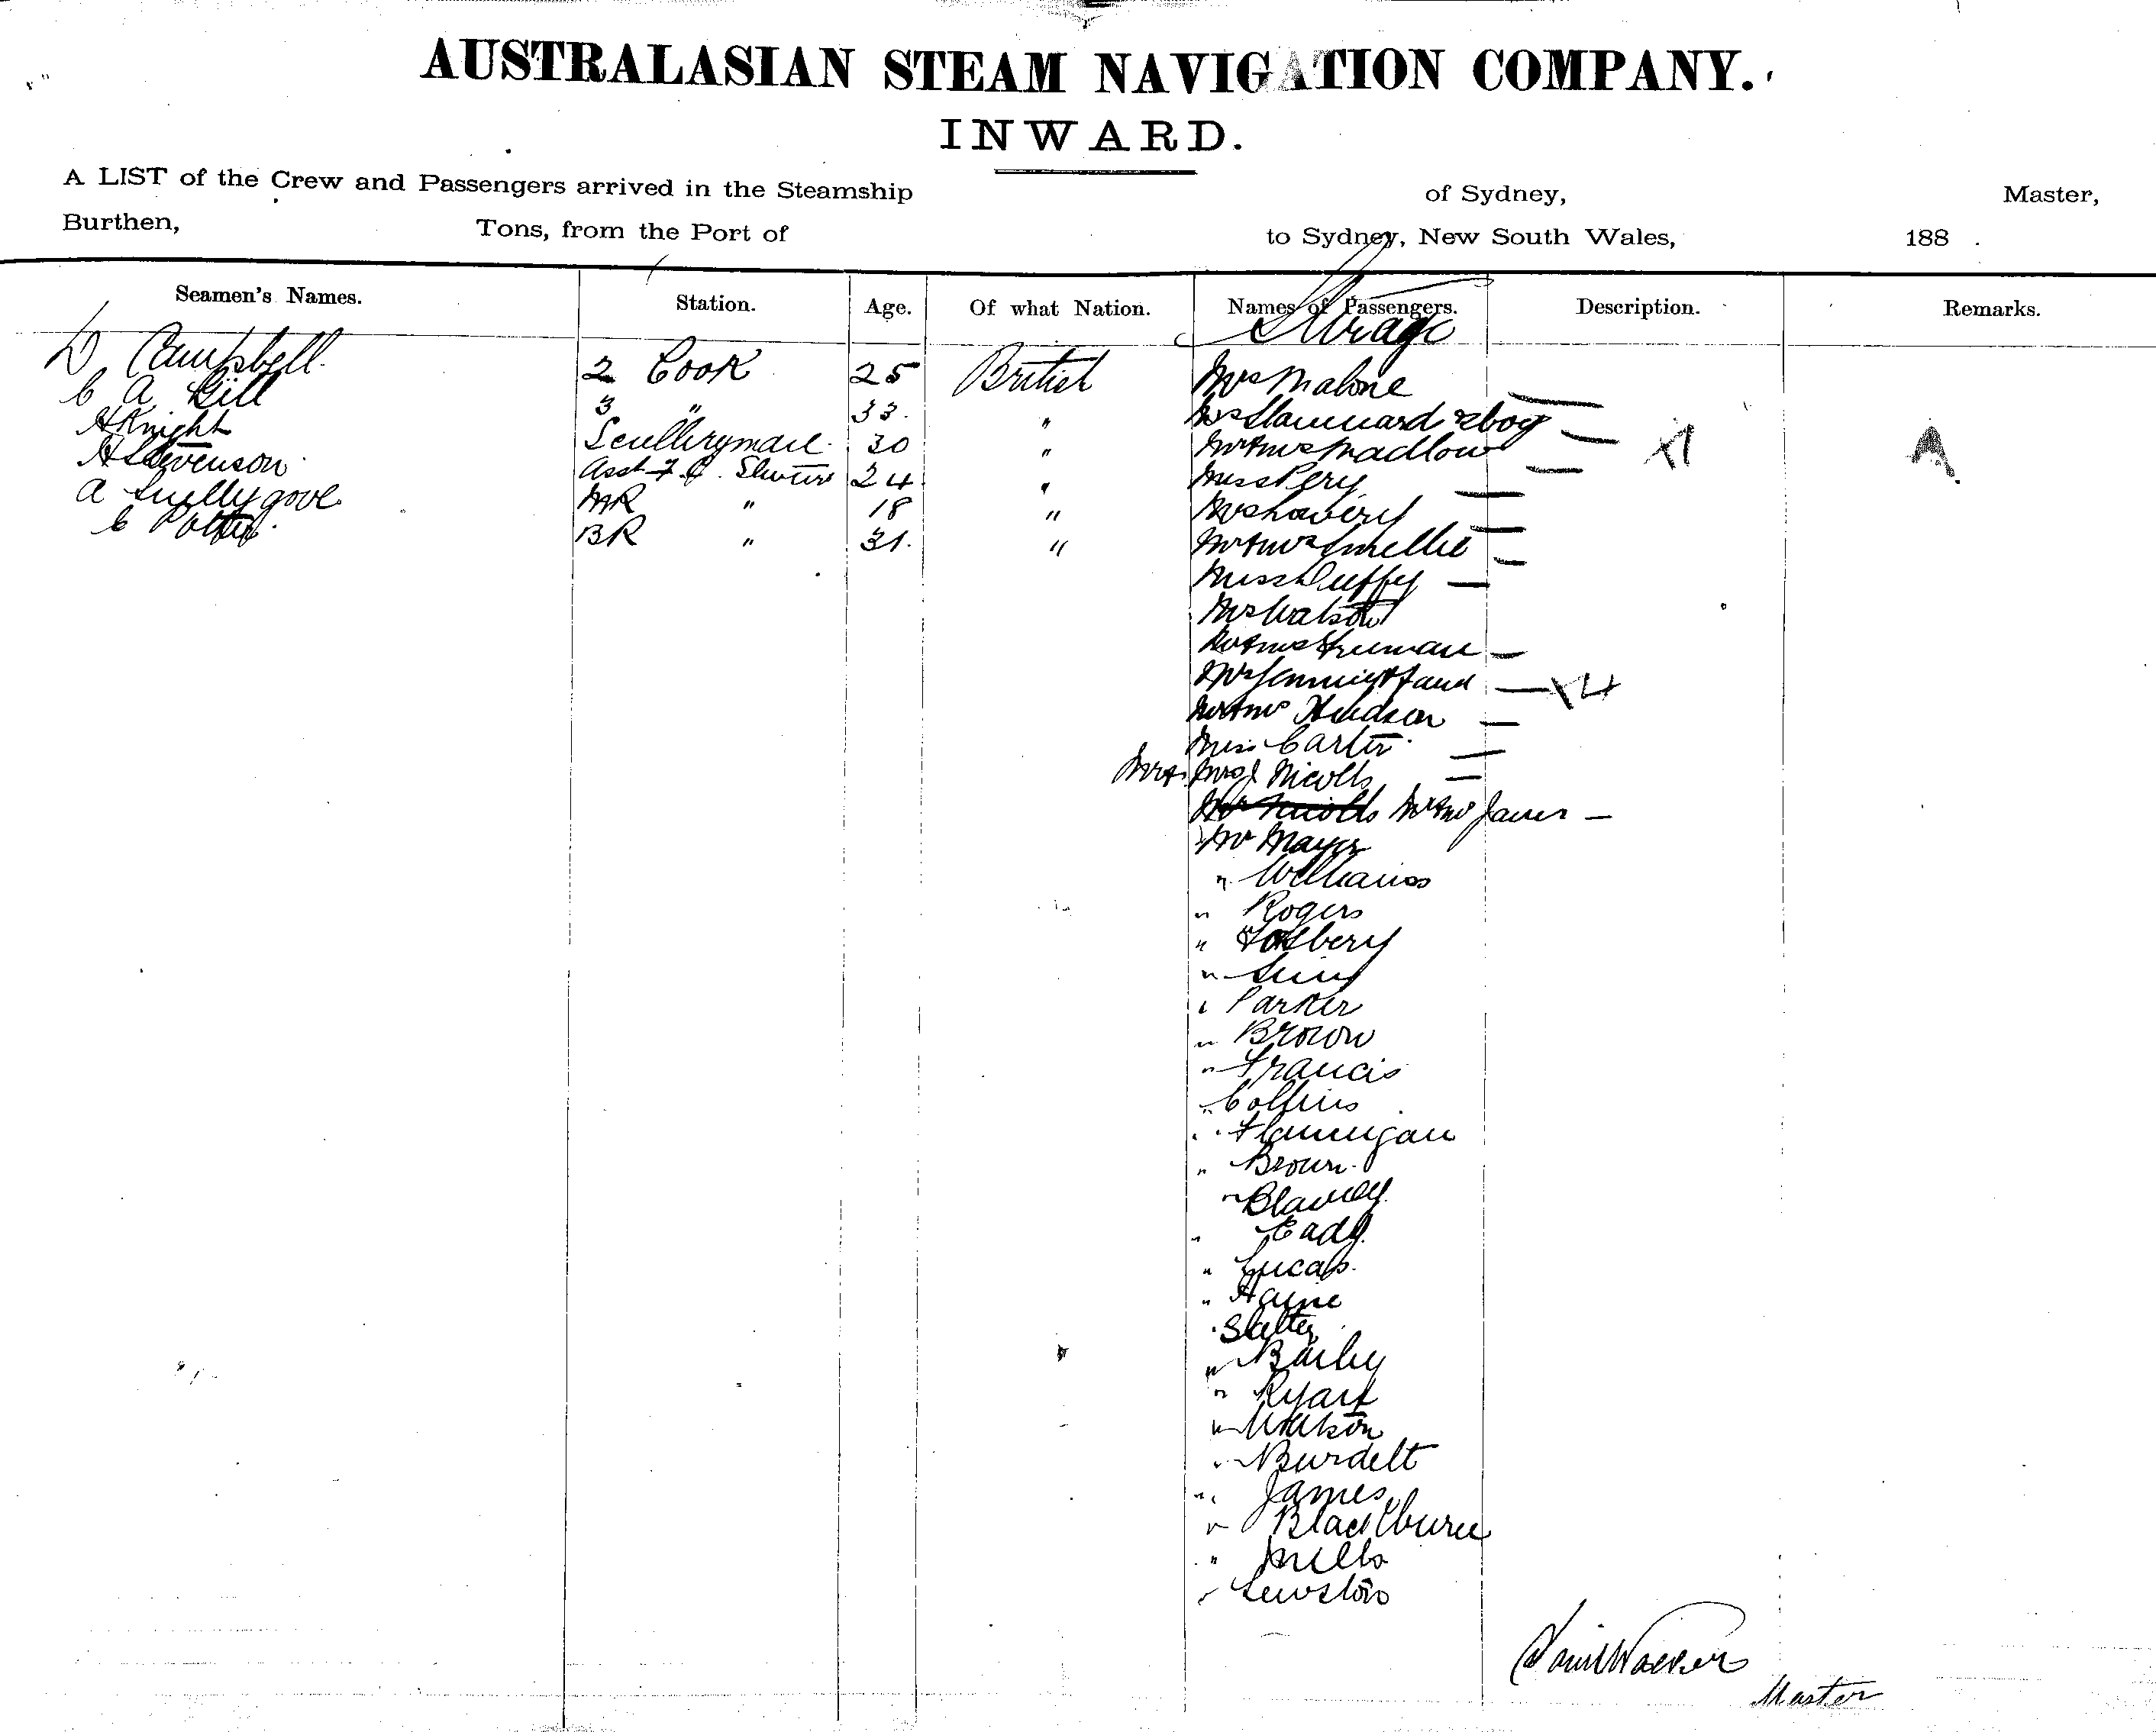 AUSTRALASIAN STEAM NAVIGATION COMPANY.
INWARD.
A LIST of the Crew and Passengers arrived in the Steamship of Sydney, Master,
Burthen, Tons, from the Port of to Sydney, New South Wales, 188 .
Seamen's Names. Station. Age. Of what Nation. Names of Passengers. Description. Remarks.
Steerage
D Campbell. 2 Cook 25 British Mrs Malone
C A Gill 3 " 33. " Mrs & boy
H Knight Sculleryman. 30 " Mr & Mrs Madlow
H Stevenson Asst F. C. 24 " Miss Pery
A 18 "
C Potter. BR " 31. " Mr & Mrs Smellie
Miss Duffy
Mrs Watson
Mr & Mrs Freeman
Mrs
Mr & Mrs Hudson
Miss Carter.
Mr & Mrs J Nicolls
Mr Nicolls Mr & Mrs James
Mr Mayer
" Williams
" Rogers
" Fosbery
"
" Parker
" Brown
" Francis
" Collins
" Flannigan
" Brown.
"
" Eady.
" Lucas.
" Hayne
" Slattery
" Bailey
" Ryan
" Watson
" Burdett
" James
" Blackburn
" Mills
"
Master
A